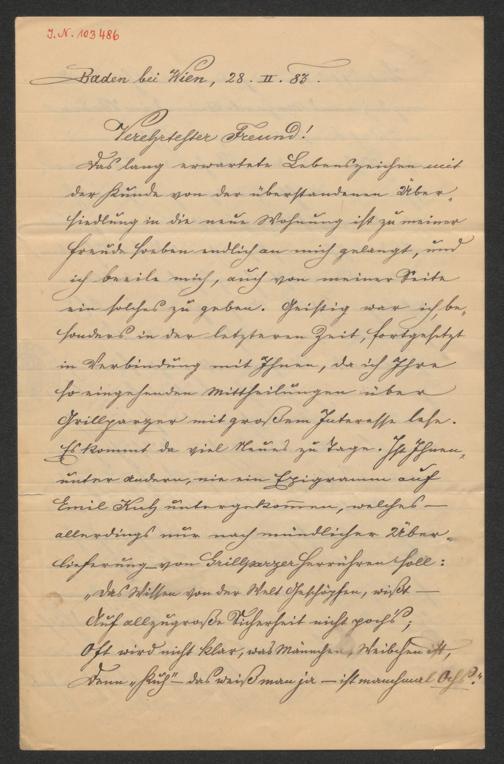 J.N. 103486
Baden bei Wien, 28. II. 83.
Verehrtester Freund!
Das lang erwartete Lebenszeichen mit
der Kunde von der überstandenen Über-
siedlung in die neue Wohnung ist zu meiner
Freude soeben endlich an mich gelangt, und
ich beeile mich, auch von meiner Seite
ein solches zu geben. Geistig war ich, be-
sonders in der letzteren Zeit, fortgesetzt
in Verbindung mit Ihnen, da ich Ihre
so eingehenden Mittheilungen über
Grillparzer mit großem Interesse lese.
Es kommt da viel Neues zu Tage. Ist Ihnen,
unter Andern, nie ein Epigramm auf
Emil Kuh untergekommen, welches –
allerdings nur nach mündlicher Über-
lieferung – von Grillparzer herrühren soll:
„Das Wissen von der Welt Geschöpfen, wißt –
Auf allzugroße Sicherheit nicht poch's;
Oft wird nicht klar, was Männchen, Weibchen ist,
Denn „Kuh" – das weiß man ja – ist manchmal Ochs."